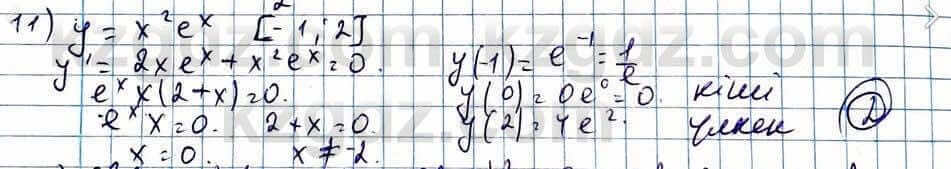 11) y = x²eˣ [-1; 2]
y' = 2xeˣ + x²eˣ = 0. y(-1) = e⁻¹ = 1/e
eˣx(2+x) = 0. y(0) = 0e⁰ = 0. кіші
eˣx = 0. 2+x = 0. y(2) = 4e². үлкен
x = 0. x ≠ -2.
D